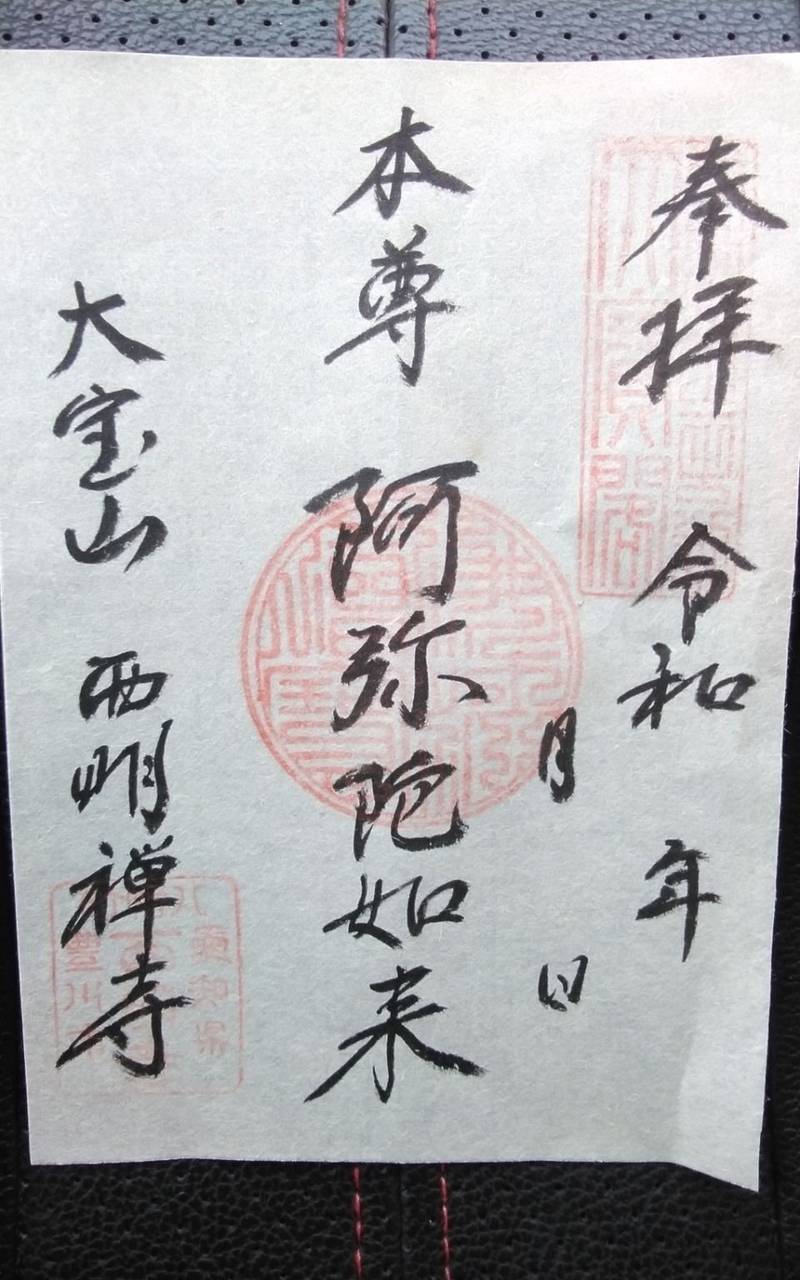 奉拝 令和 年
月 日
本尊 阿弥陀如来
大宝山 西明禅寺
愛知県
豊川市